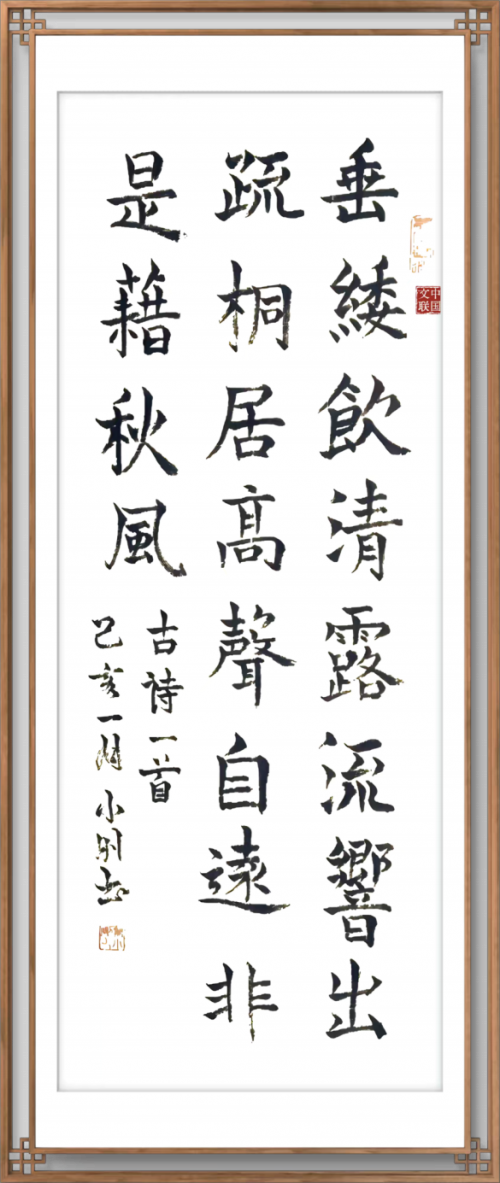 中国文联
垂緌飲清露流響出
疏桐居髙聲自遠非
是藉秋風
古诗一首
己亥一月小刚书